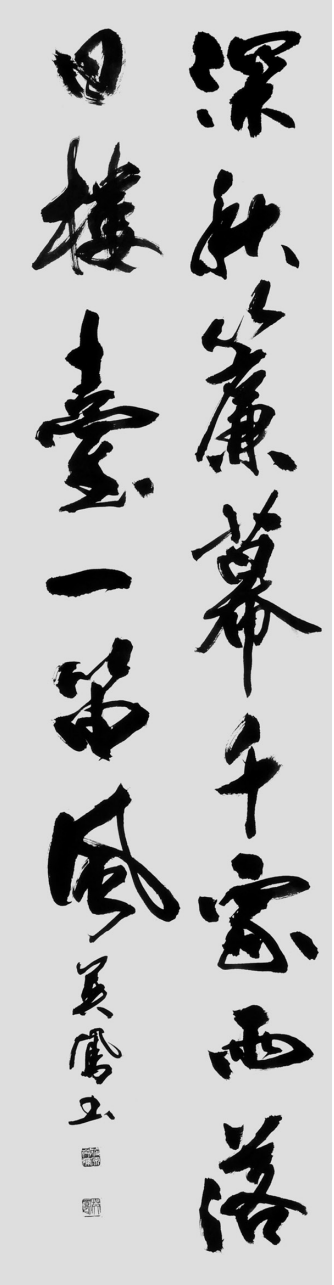 深秋簾幕千家雨落
日樓臺一笛風
英鳳书